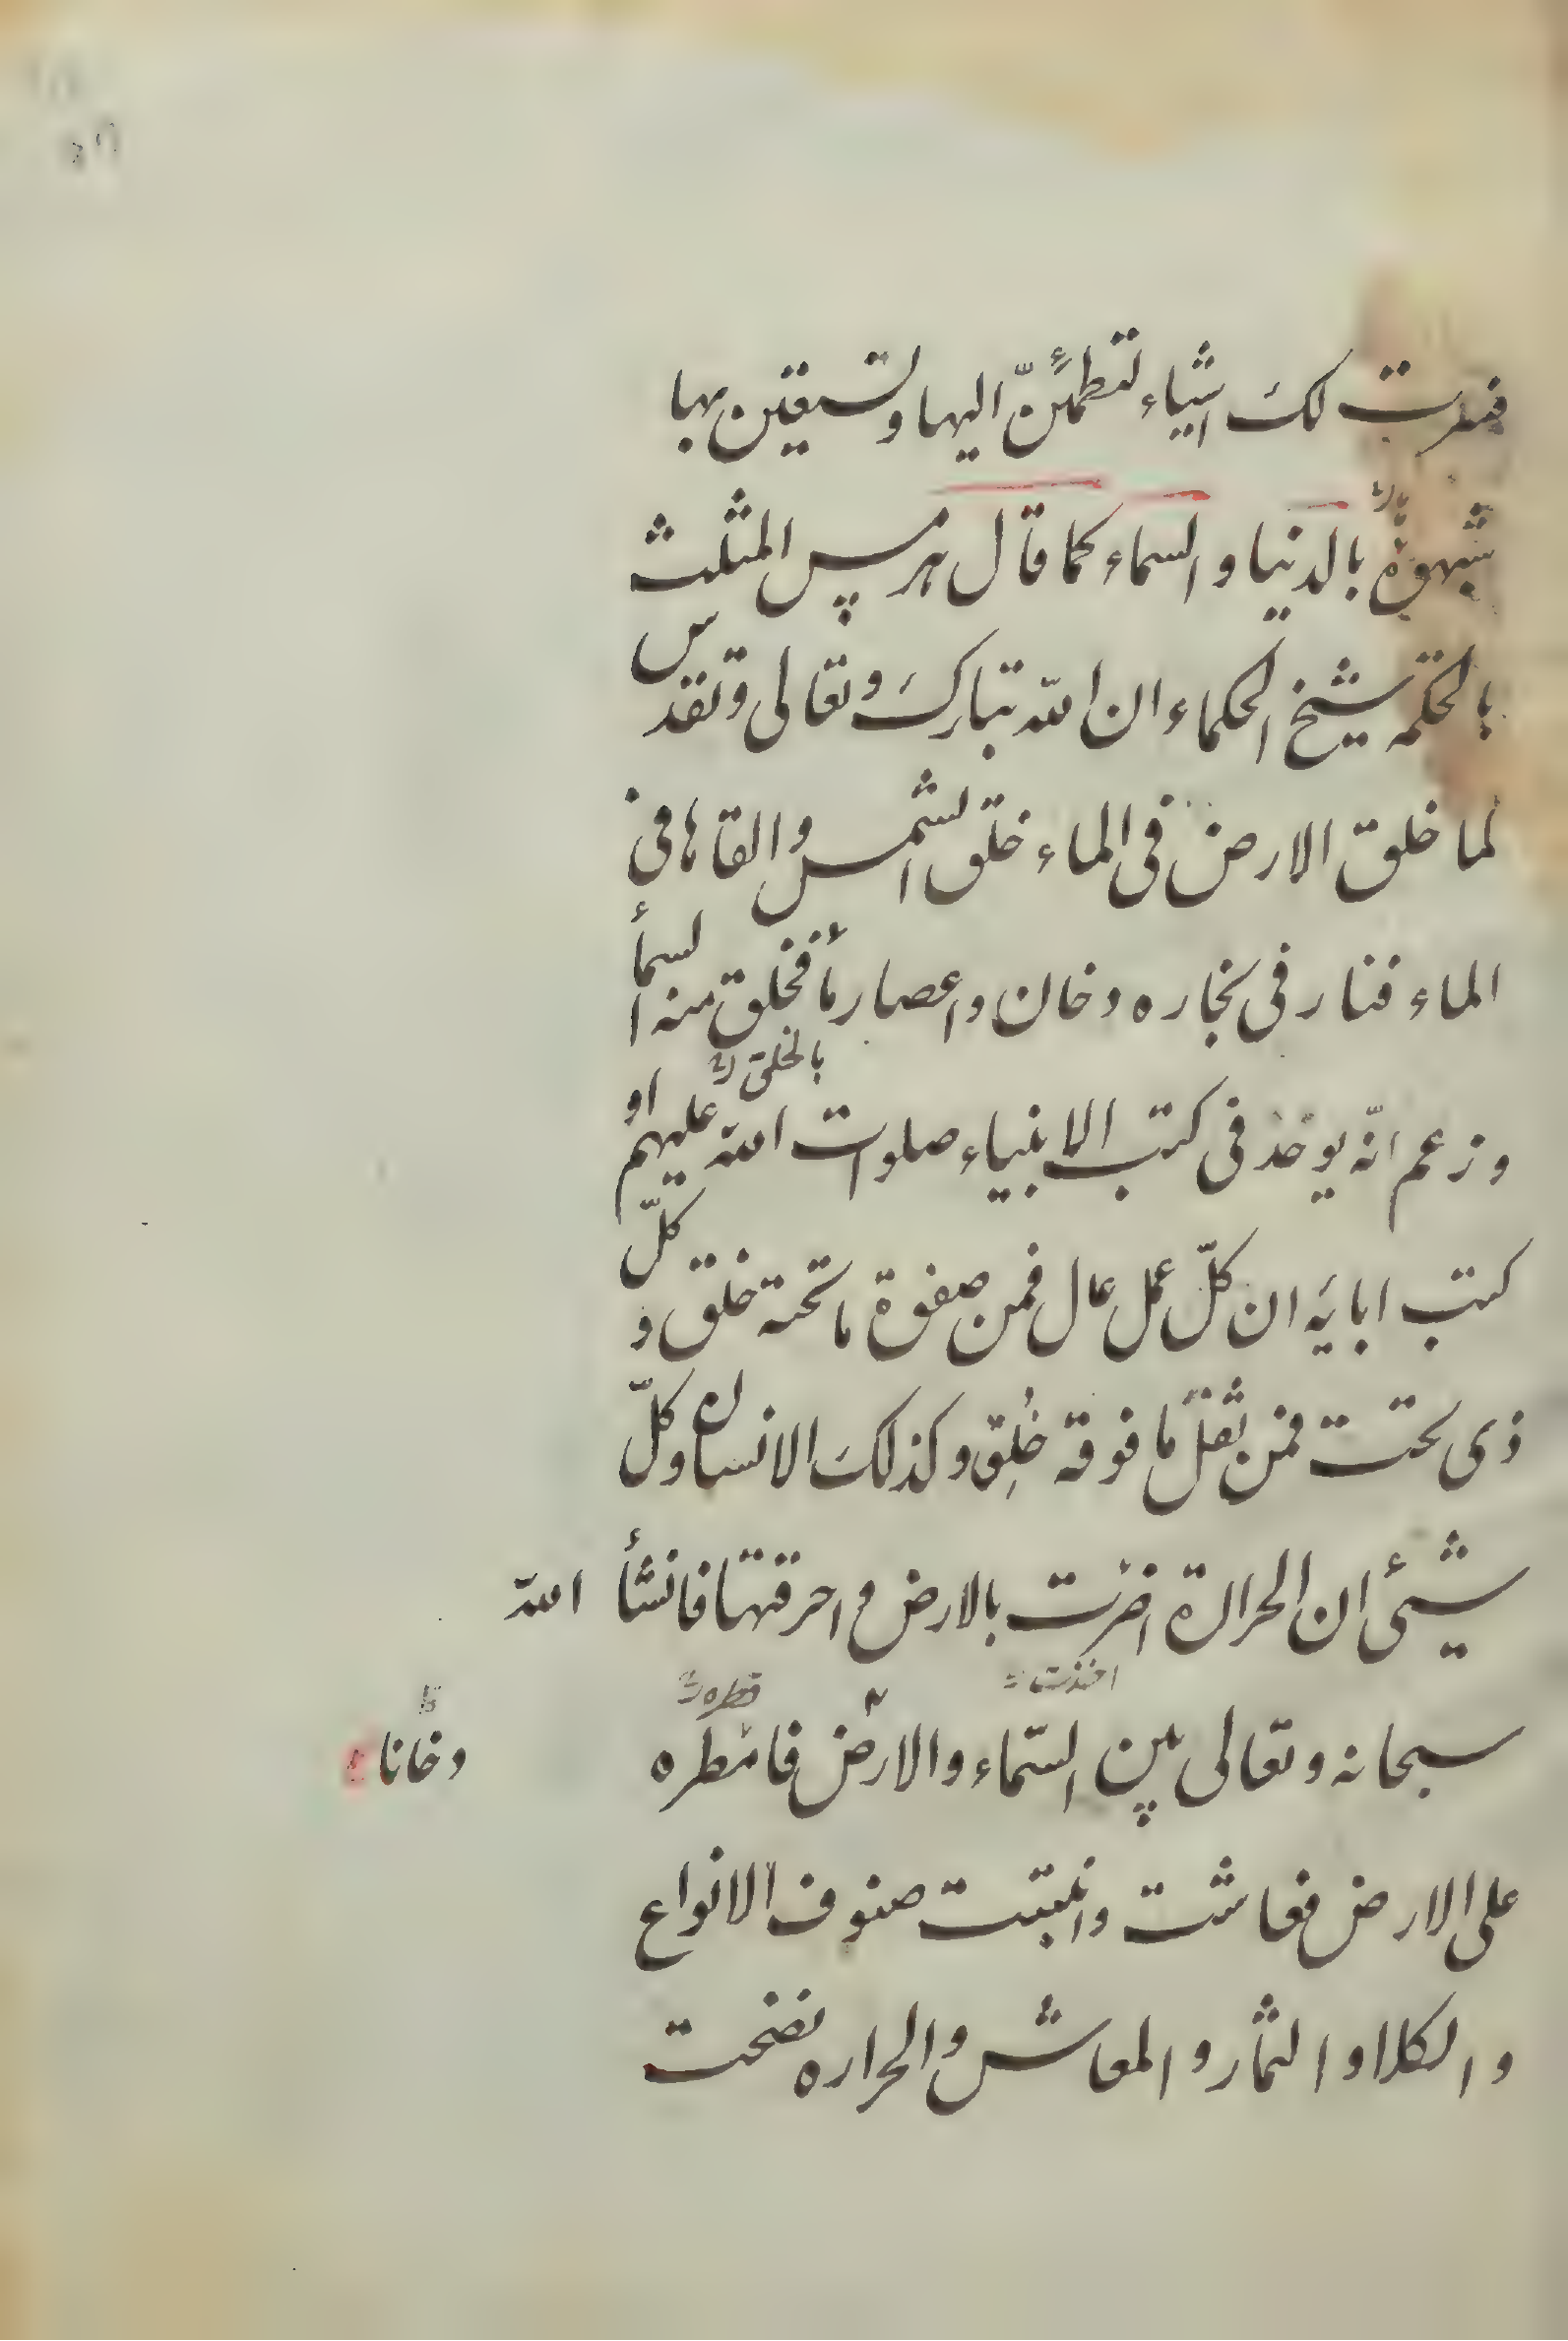 فنظرت لك اشياء لتطمئنّ اليها وتستيقن بها
شبهوة بالدنيا والسماء كما قال هرمس المثلث
بالحكمه شيخ الحكماء ان الله تبارك وتعالى وتقدس
لما خلق الارض فى الماء خلق الشمس والقاها فى
الماء فثار فى بخاره دخان واعصار ماء فخلق منه السماء
بالخلق
وزعم انّه يوخذ فى كتب الانبياء صلوات الله عليهم او
كتب ابايه ان كلّ عمل عال فمن صفوة ما تحته خلق وكلّ
ذى تحت فمن ثفل ما فوقه خُلِق وكذلك الانسان وكلّ
شيئ ان الحرارة اضرت بالارض واحرقتها فانشأ الله
اخذت قطره
سبحانه وتعالى بين السّماء والارض فامطره
دخانا
على الارض فعاشت وانبتت صنوف الانواع
والكلا والثمار والمعاش والحراره نضجت